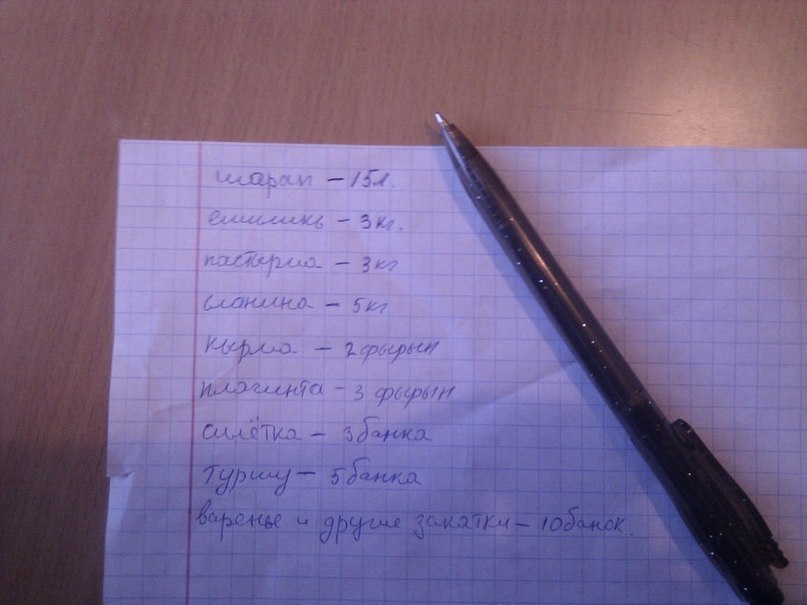 шарап – 15л.
емишикь – 3кг.
пастырма – 3кг
сланина – 5кг
кырма – 2 фырын
плачинта – 3 фырын
силётка – 3 банка
туршу – 5 банка
варенье и другие закатки – 10 банок.